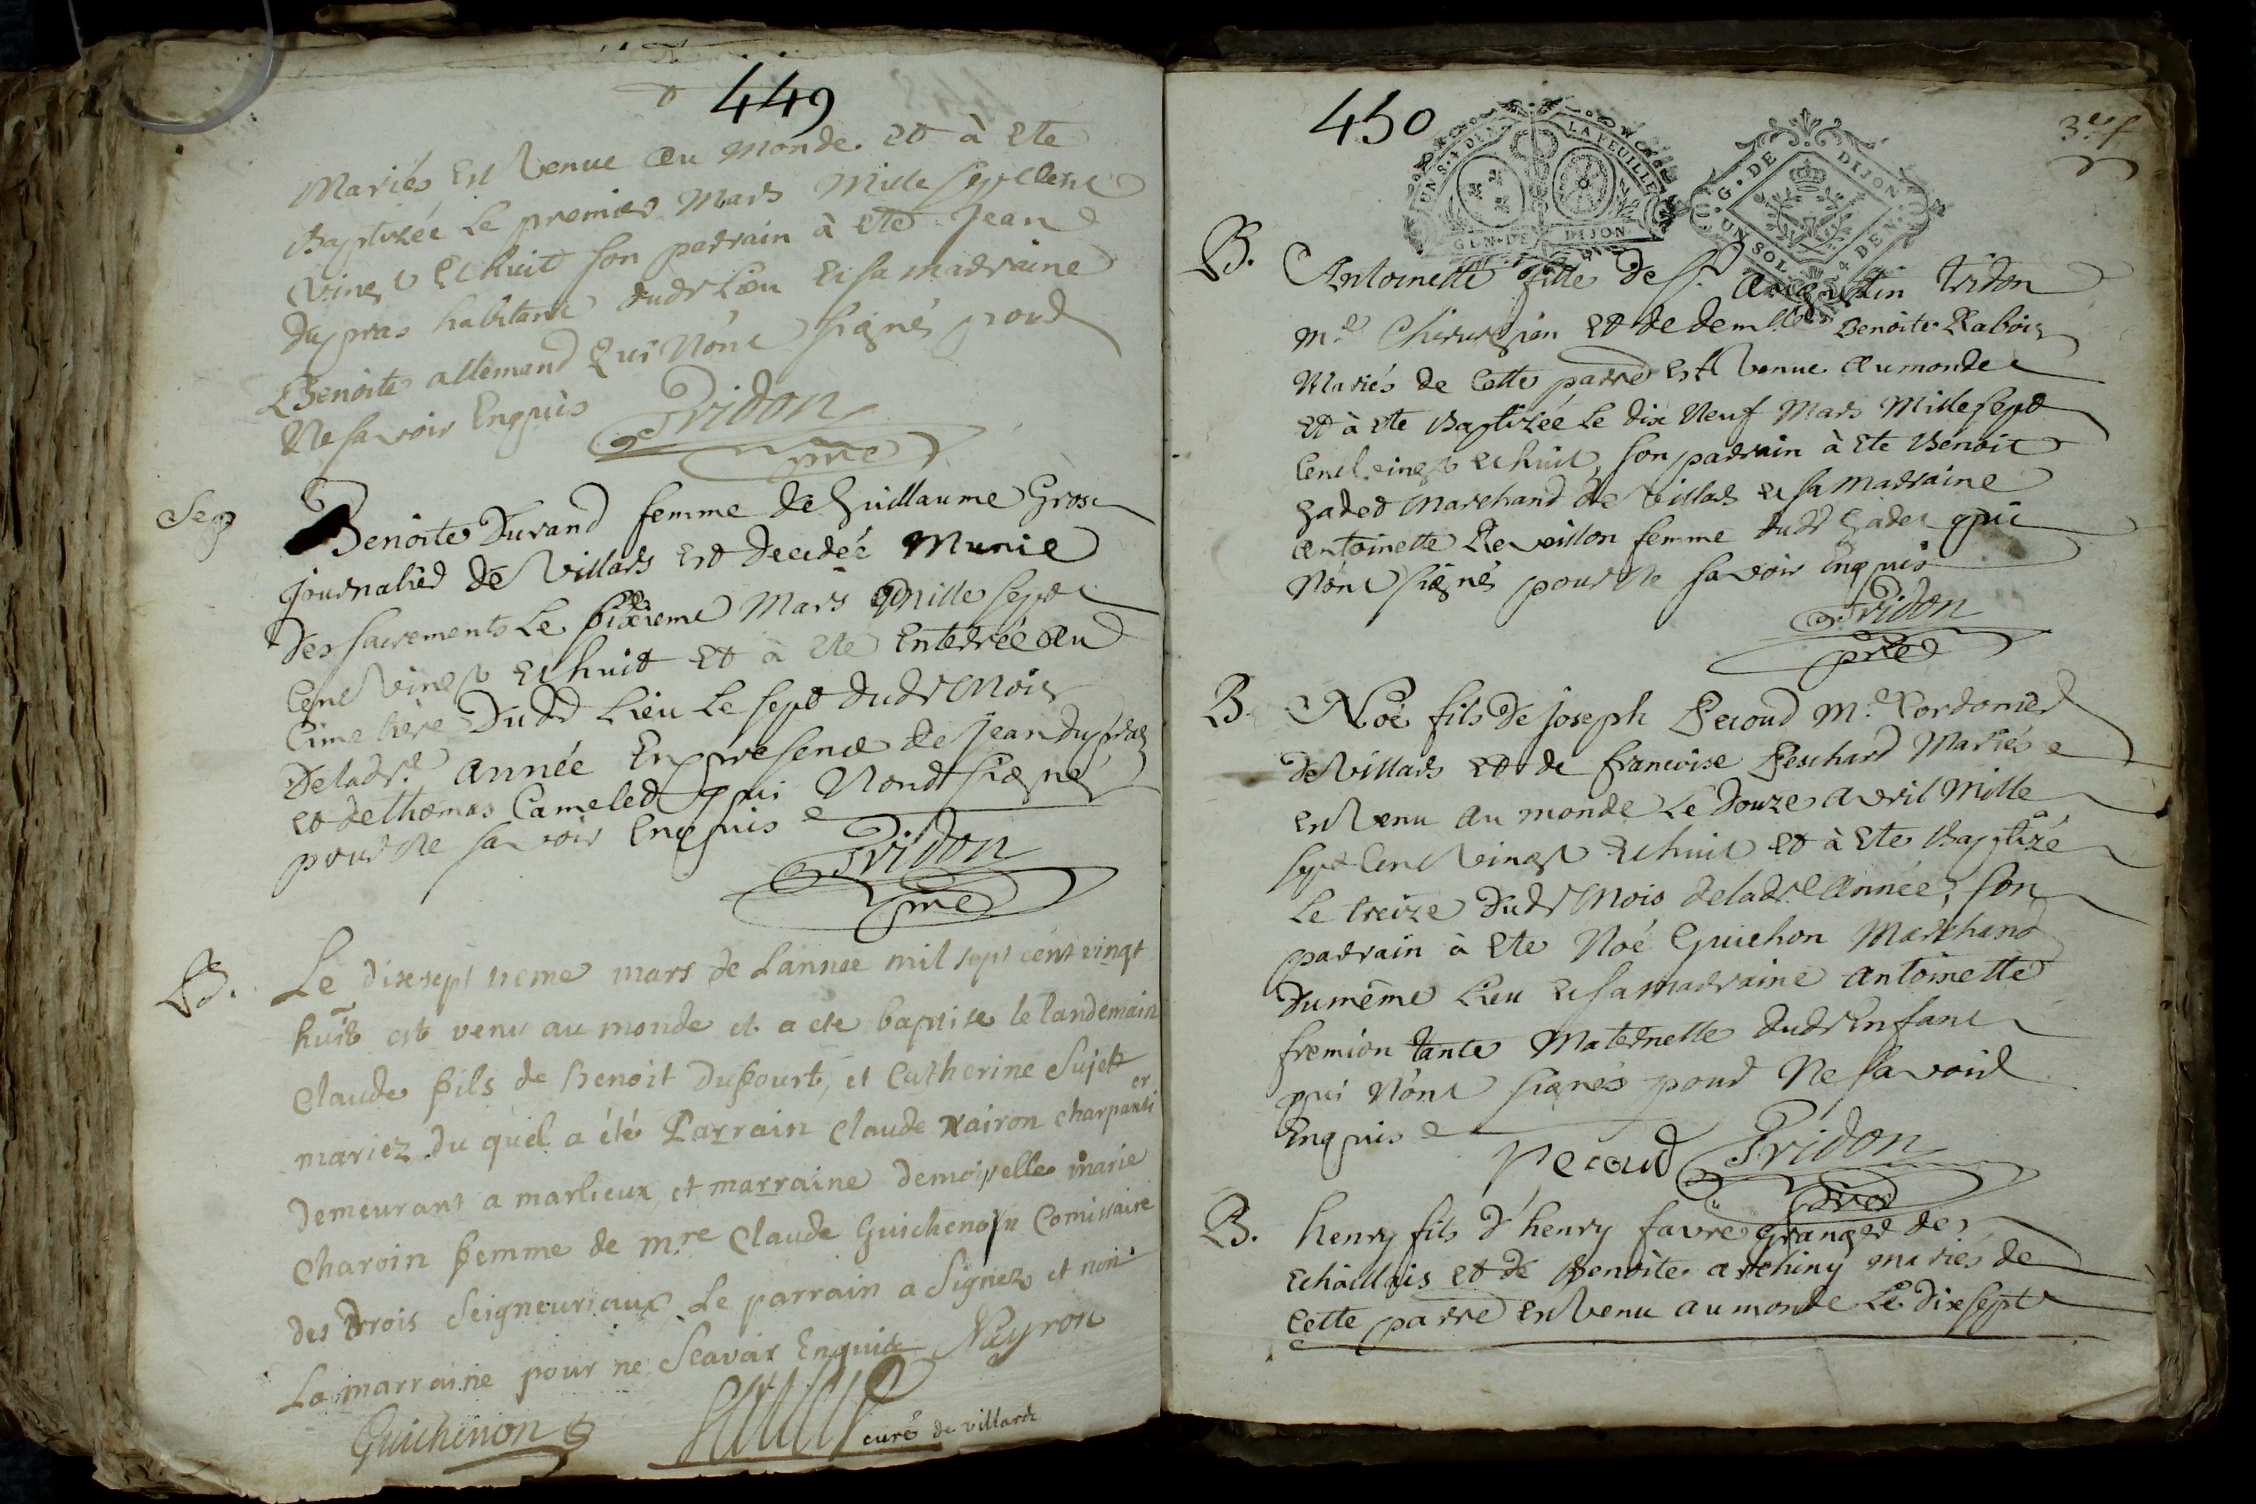 449
Mariés Est Venue Au Monde Et à Ete
Baptizée Le premier Mars Mille Sept Cent
Vingt Et huit Son parrain à Ete Jean
Dupras habitant dudt Lieu Et sa marraine
Benoite allemand Qui N'ont Signés pour
Ne savoir Enquis Tridon
pre
Sep
Benoite Durand femme de Guillaume Gros
Journalier de Villars Est decedée Munie
Des sacrements Le Sixieme Mars Mille sept
Cent Vingt Et huit Et à Ete Enterrée Au
Cimetiere Dudt Lieu Le Sept dudt Mois
De ladte année En presence de Jean dupras
Et de thomas Camelet qui N'ont Signé
pour Ne savoir Enquis
Tridon
pre
B.
Le dixsept ieme mars de Lannee mil sept cent vingt
huit est venu au monde et a ete baptise le landemain
Claude fils de benoit Dufourt, et Catherine Sujet
mariez du quel a été Parrain Claude Nairon charpanti er
Demeurant a marlieux et marraine demoiselle marie
Charoin femme de mre Claude Guichenon Comissaire
des Drois Seigneuriaux Le parrain a Signez et non
La marraine pour ne Scavoir Enquise Nayron
Guichenon
curé de villars
450
3e f
UN S. 4 DEN. LA FEUILLE
GEN. DE DIJON
G. DE DIJON
UN SOL 4 DEN.
B.
Antoinette fille de Sr. Augustin tridon
Me. Chirurgien Et de demlle Benoite Rabois
Mariés de Cette parre Est Venue Au monde
Et à Ete Baptizée Le dix Neuf Mars Mille sept
Cent vingt Et huit, son parrain à Ete Benoit
Gadet Marchand de Villars Et sa Marraine
Antoinette Reveillon femme dudt Gadet qui
N'ont Signés pour Ne savoir Enquis
Tridon
pre
B.
Noé fils De Joseph Pecoud Me. Cordonier
De Villars Et de francoise Peschard Mariés
Est Venu Au monde Le Douze avril Mille
Sept Cent Vingt Et huit Et à Ete Baptizé
Le treize Dudt Mois de ladte Année, son
parrain à Ete Noé Guichon Marchand
Du même Lieu Et sa Marraine Antoinette
fremion tante Maternelle dudt Enfant
qui N'ont Signés pour Ne savoir
Enquis
Pecoud Tridon
pre
B.
henry fils d'henry favre Granger des
Echaillais Et de Benoite archiny mariés de
Cette parre Est Venu au monde Le dixsept